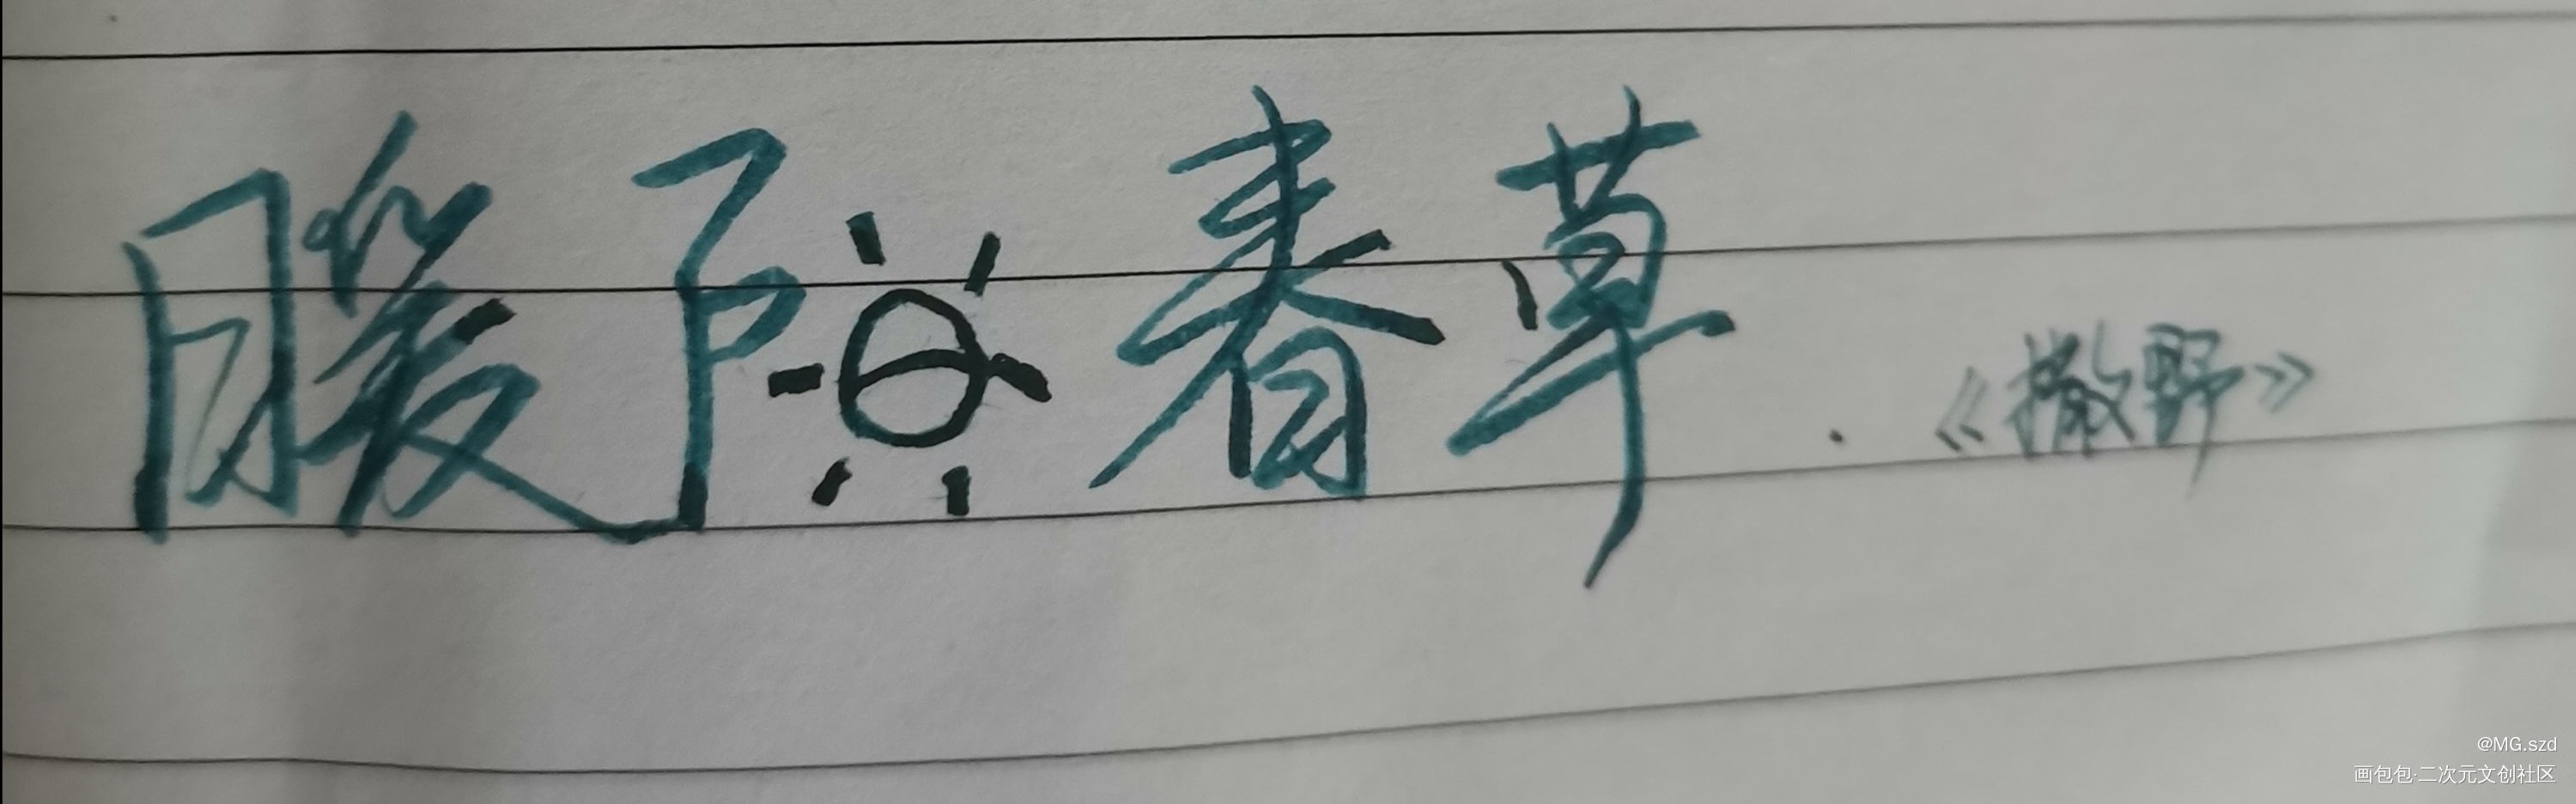 暖阳春草 《撒野》
@MG.szd
画包包·二次元文创社区